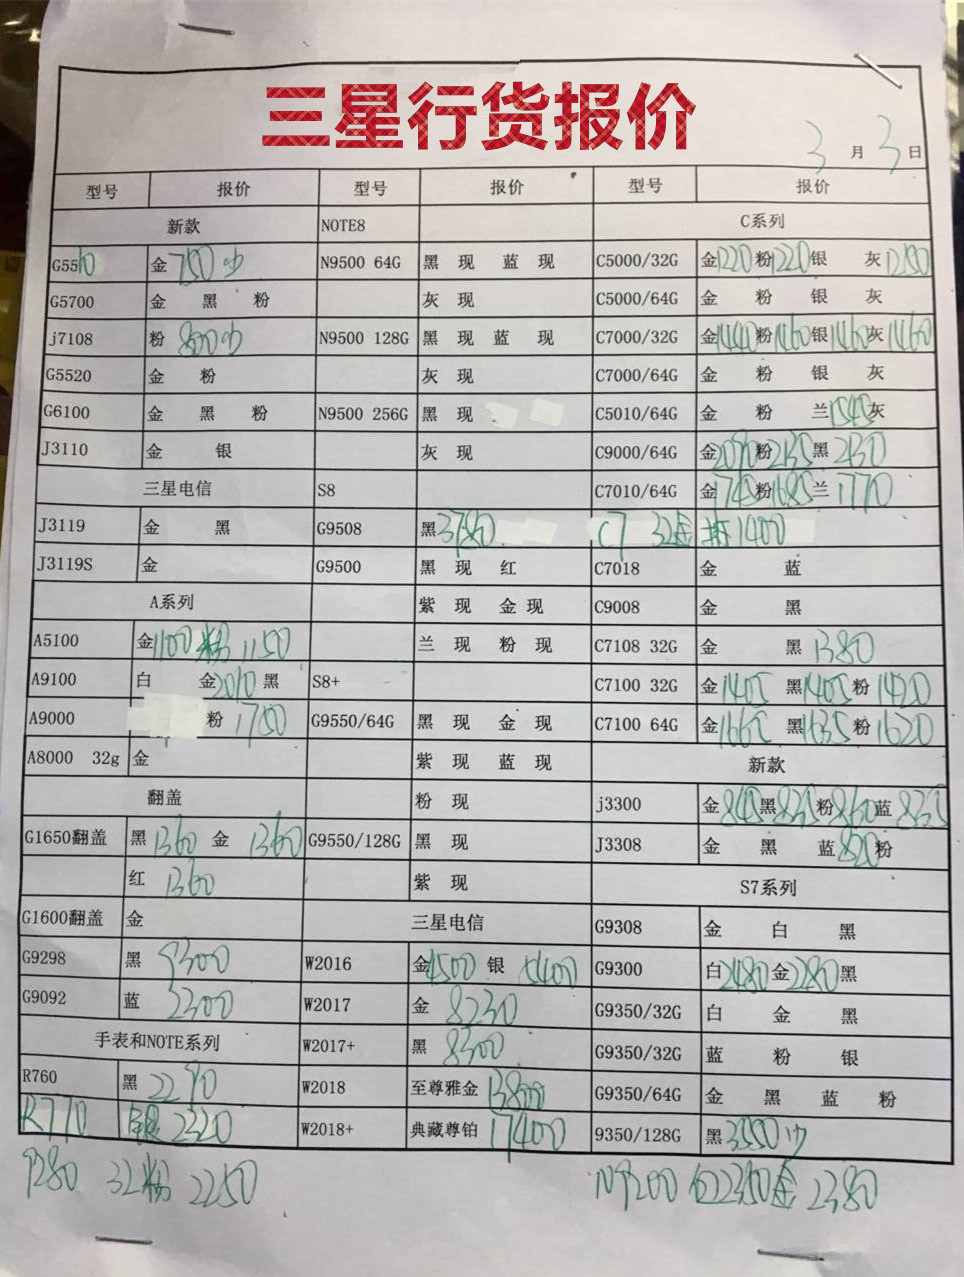 三星行货报价
3 月 3 日
型号 报价 型号 报价 型号 报价
新款 NOTE8 C系列
G5510 金 750 N9500 64G 黑 现 蓝 现 C5000/32G 金1220 粉1220 银 灰1250
G5700 金 黑 粉 灰 现 C5000/64G 金 粉 银 灰
j7108 粉 800 N9500 128G 黑 现 蓝 现 C7000/32G 金1440 粉1460 银1460 灰1460
G5520 金 粉 灰 现 C7000/64G 金 粉 银 灰
G6100 金 黑 粉 N9500 256G 黑 现 C5010/64G 金 粉 兰1545 灰
J3110 金 银 灰 现 C9000/64G 金2090 粉2135 黑 2130
三星电信 S8 C7010/64G 金1745 粉1685 兰 1770
J3119 金 黑 G9508 黑3780 C7 32金 1400
J3119S 金 G9500 黑 现 红 C7018 金 蓝
A系列 紫 现 金 现 C9008 金 黑
A5100 金1100 粉 1150 兰 现 粉 现 C7108 32G 金 黑 1380
A9100 白 金2010 黑 S8+ C7100 32G 金1405 黑1405 粉 1420
A9000 粉 1750 G9550/64G 黑 现 金 现 C7100 64G 金1665 黑1635 粉 1620
A8000 32g 金 紫 现 蓝 现 新款
翻盖 粉 现 j3300 金 845 黑 835 粉 860 蓝 835
G1650翻盖 黑 1360 金 1360 G9550/128G 黑 现 J3308 金 黑 蓝 820 粉
红 1360 紫 现 S7系列
G1600翻盖 金 三星电信 G9308 金 白 黑
G9298 黑 9300 W2016 金4500 银 5400 G9300 白2480 金2280 黑
G9092 蓝 2300 W2017 金 8230 G9350/32G 白 金 黑
手表和NOTE系列 W2017+ 黑 8300 G9350/32G 蓝 粉 银
R760 黑 2290 W2018 至尊雅金 13800 G9350/64G 金 黑 蓝 粉
R770 银 2320 W2018+ 典藏尊铂 17400 9350/128G 黑 3550
9280 32粉 2250 N9200 白2350 金 2380